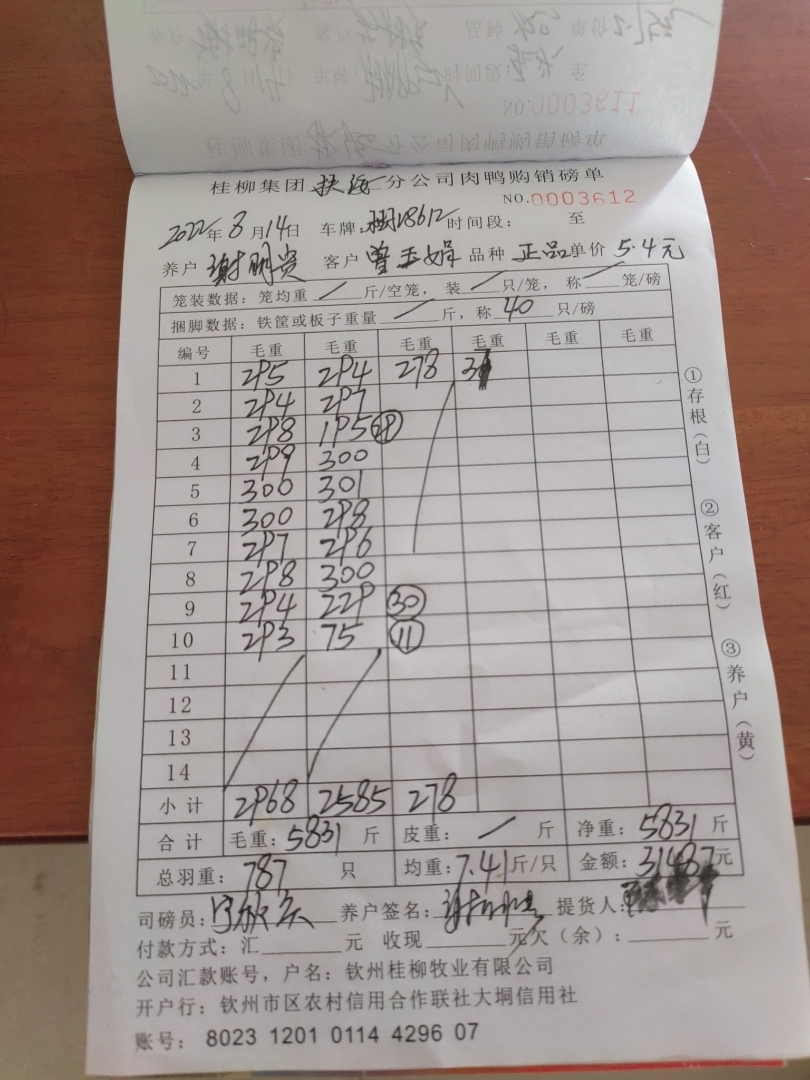 NO.0003611
桂柳集团 分公司肉鸭购销磅单
桂柳集团 扶绥 分公司肉鸭购销磅单
NO.0003612
2022年 8 月 14 日 车牌: 18612 时间段: 至
养户 谢明贵 客户 曾玉娟 品种 正品 单价 5.4元
笼装数据: 笼均重 / 斤/空笼, 装 / 只/笼, 称 / 笼/磅
捆脚数据: 铁筐或板子重量 / 斤, 称 40 只/磅
编号 毛重 毛重 毛重 毛重 毛重 毛重
1 295 294 278
2 294 297
3 298 195 ㉘
4 299 300
5 300 301
6 300 298
7 297 296
8 298 300
9 294 229 ㉚
10 293 75 ⑪
11
12
13
14
小计 2968 2585 278
合计 毛重: 5831 斤 皮重: / 斤 净重: 5831 斤
总羽重: 787 只 均重: 7.41 斤/只 金额: 31487元
司磅员: 养户签名: 提货人:
付款方式: 汇 元 收现 元 欠(余): 元
公司汇款账号, 户名: 钦州桂柳牧业有限公司
开户行: 钦州市区农村信用合作联社大垌信用社
账号: 8023 1201 0114 4296 07
①存根(白)
②客户(红)
③养户(黄)